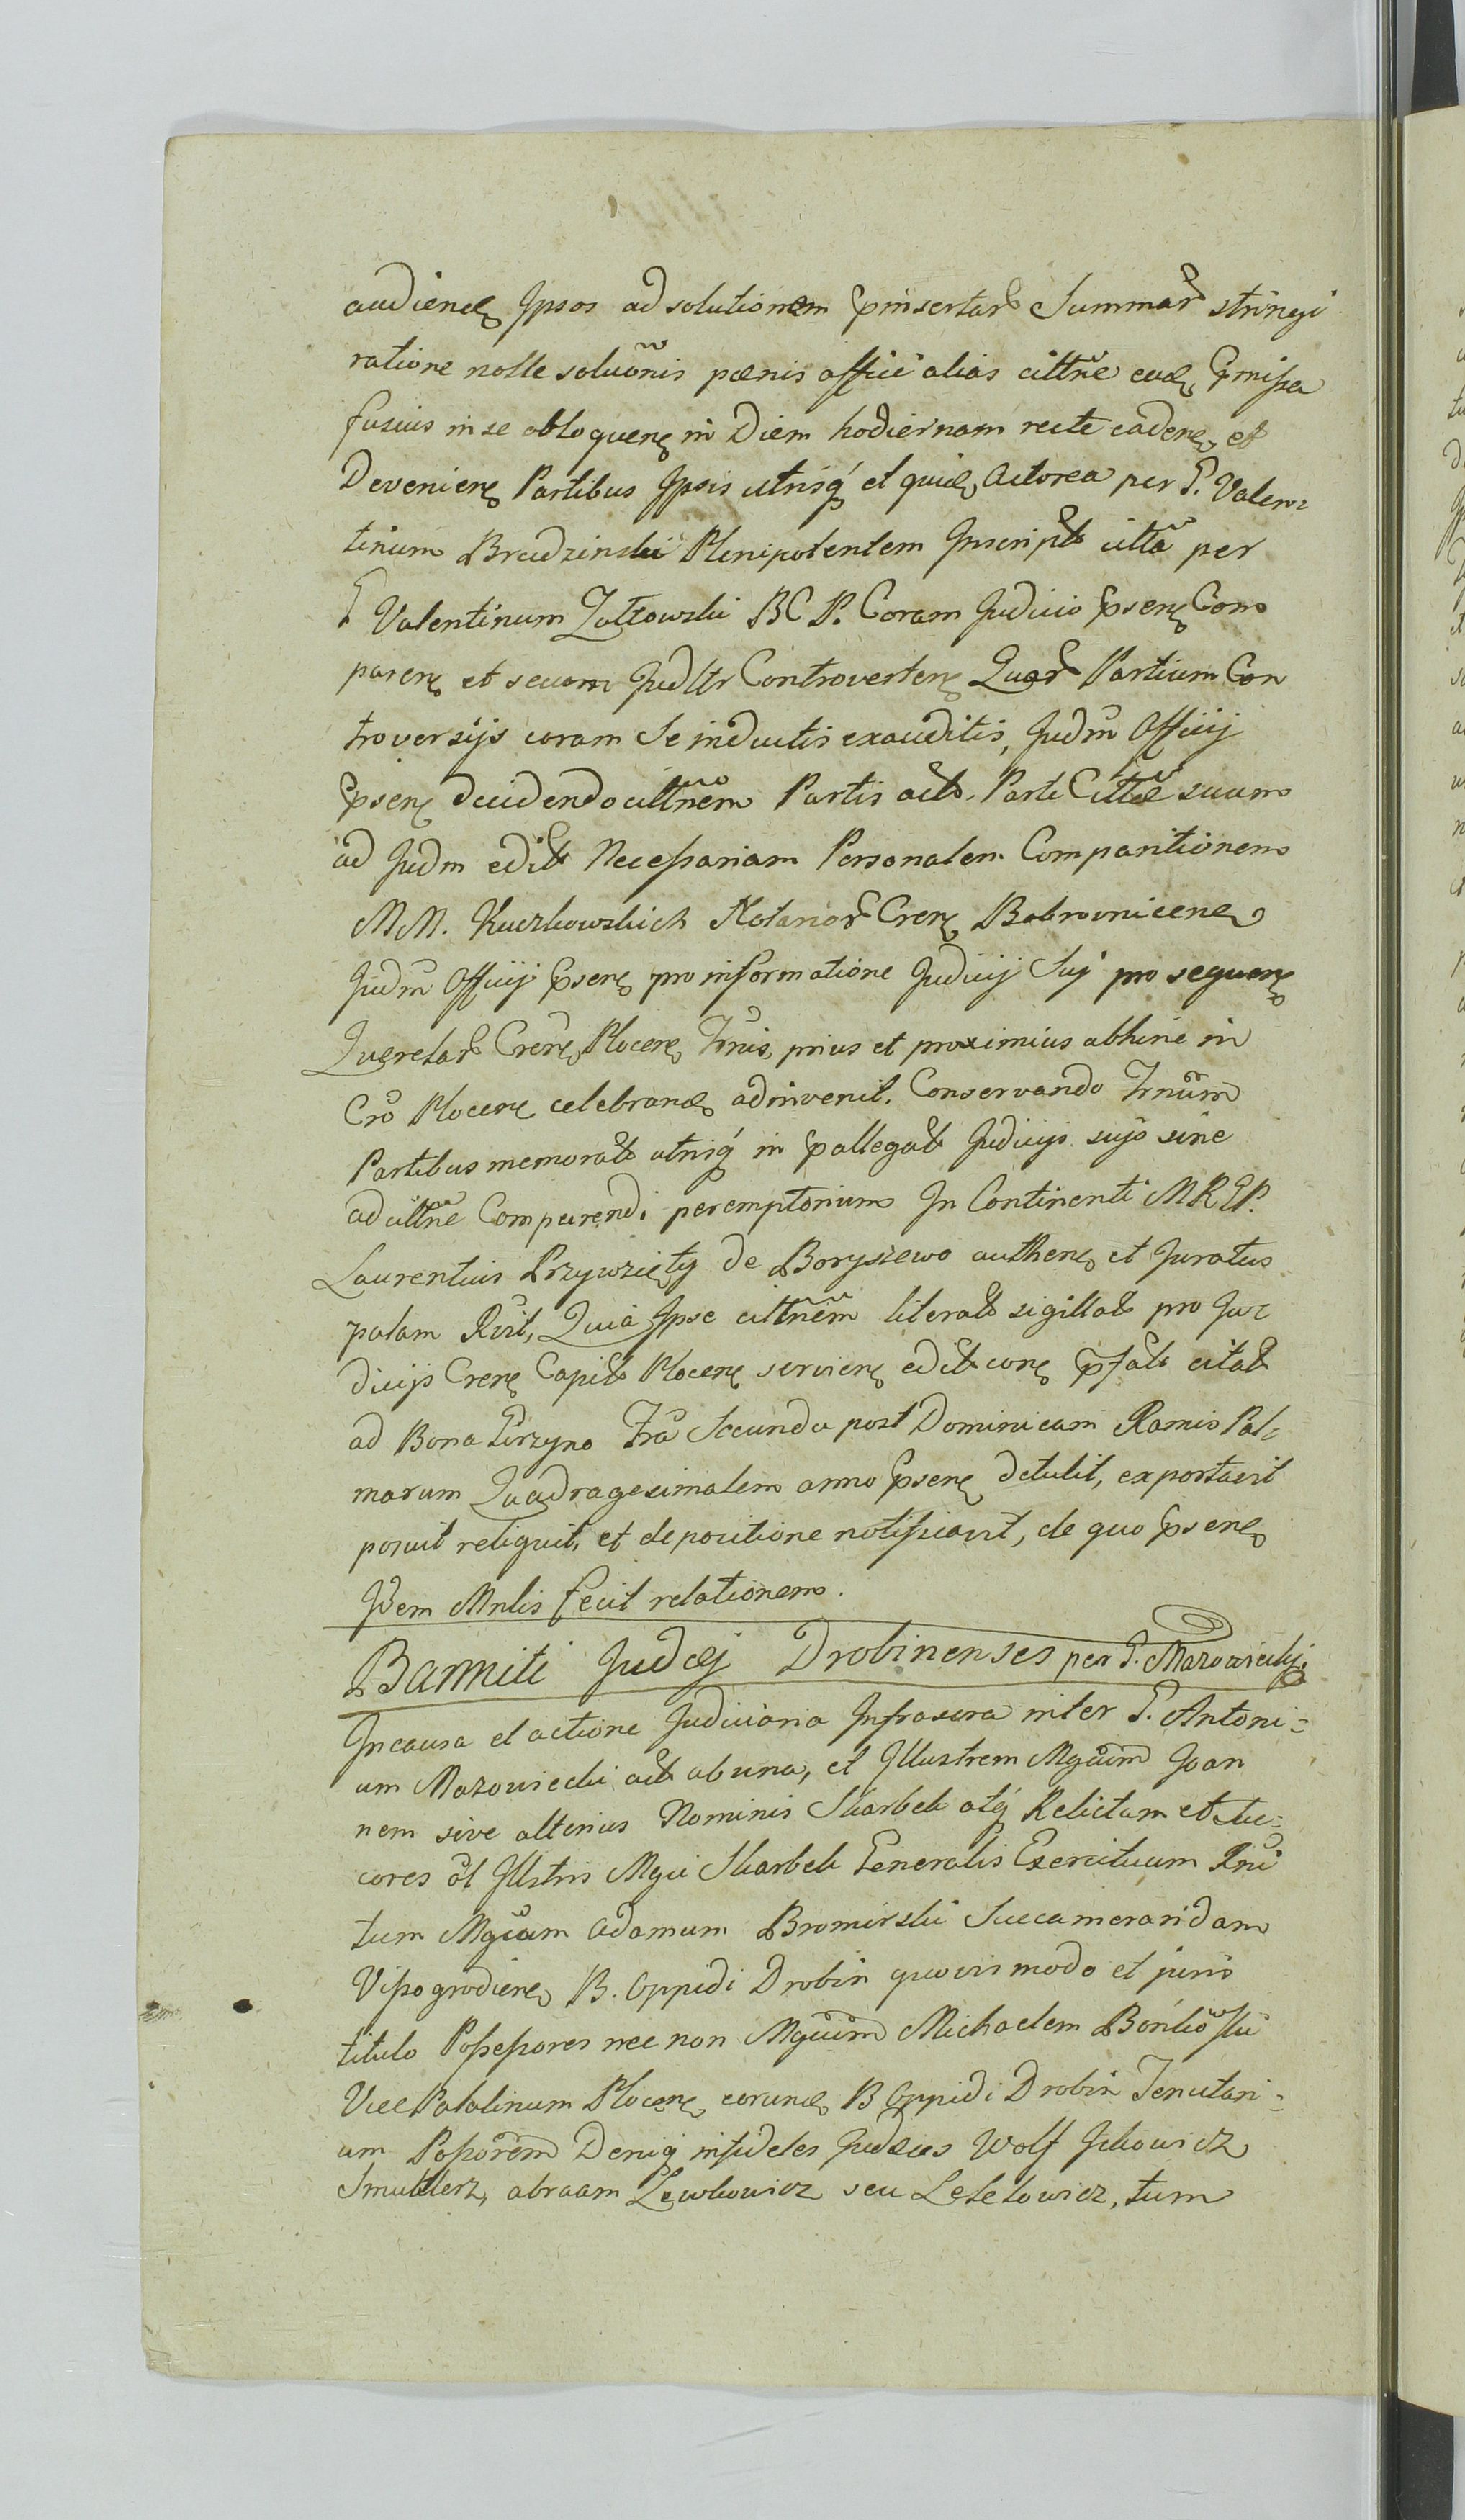 audiend Ipsos ad solutionem pinsertar Summar stringi
ratione nolle solũonis pœnis affici alias cittñe eud pmissa
fusius in se obloquen in Diem hodiernam recte caden, et
Devenien Partibus Ipsis utrisq́ et quid, Actorea per G. Valen=
tinum Brudzinski Plenipotentem Inscript citta per
G Valentinum Zołtowski BCP. Coram Judicio psen Com
paren et secum Judltr Controverten Quar Partium Con
troversijs coram Se inductis exauditis, Judm̃ Officij
psen decidendo cittñem Partis act. Parte Cittæ suum
ad Judm edit Necessariam Personalem Comparitionem
MM. Kuczkowskich Notarior Cren Bobrownicen
Judm̃ Officij psen pro informatione Judicij Sui pro sequen
Queretar Cren Plocen Trnis, prius et proximius abhinc in
Cro Plocen celebrand adinvenit. Conservando Trnum
Partibus memorat utrisq́ in pallegat Judicijs suis sine
ad cittñe Comparendi peremptorium In Continenti MRGP.
Laurentius Przywzięty de Boryszewo authen et Juratus
palam Rcit, Quia Ipse cittñem literat sigillat pro Ju=
dicijs Cren Capit Plocen servien edit con pfat citat
ad Bona Girzyno Fra Secunda post Dominicam Ramis Pal=
marum Quadragesimalem anno psen detulit, exportavit
posuit reliquit, et de positione notificavit, de quo psen
Idem Mnlis fecit relationem.
Banniti Judæj Drobinenses per G. Mazowiecki
In causa et actione Judiciaria Infrascra inter G. Antoni=
um Mazowiecki act ab una, et Illustrem Mgcum Joan
nem sive alterius Nominis Skarbek atq́ Relictam et Suc=
cores ol Illstris Mgci Skarbek Generalis Exercituum Rni
tum Mgcum Adamum Bromirski Succameraridam
Vissogrodien B. Oppidi Drobin quovis modo et juris
titulo Possessores nec non Mgcum Michaelem Bońkowski
Vice Palatinum Plocen eorund B Oppidi Drobin Tenutari=
um Possorem Deniq́ infideles Judæos Wolf Ickowicz
Smuklerz, abraam Lewkowicz seu Lelelowicz, tum